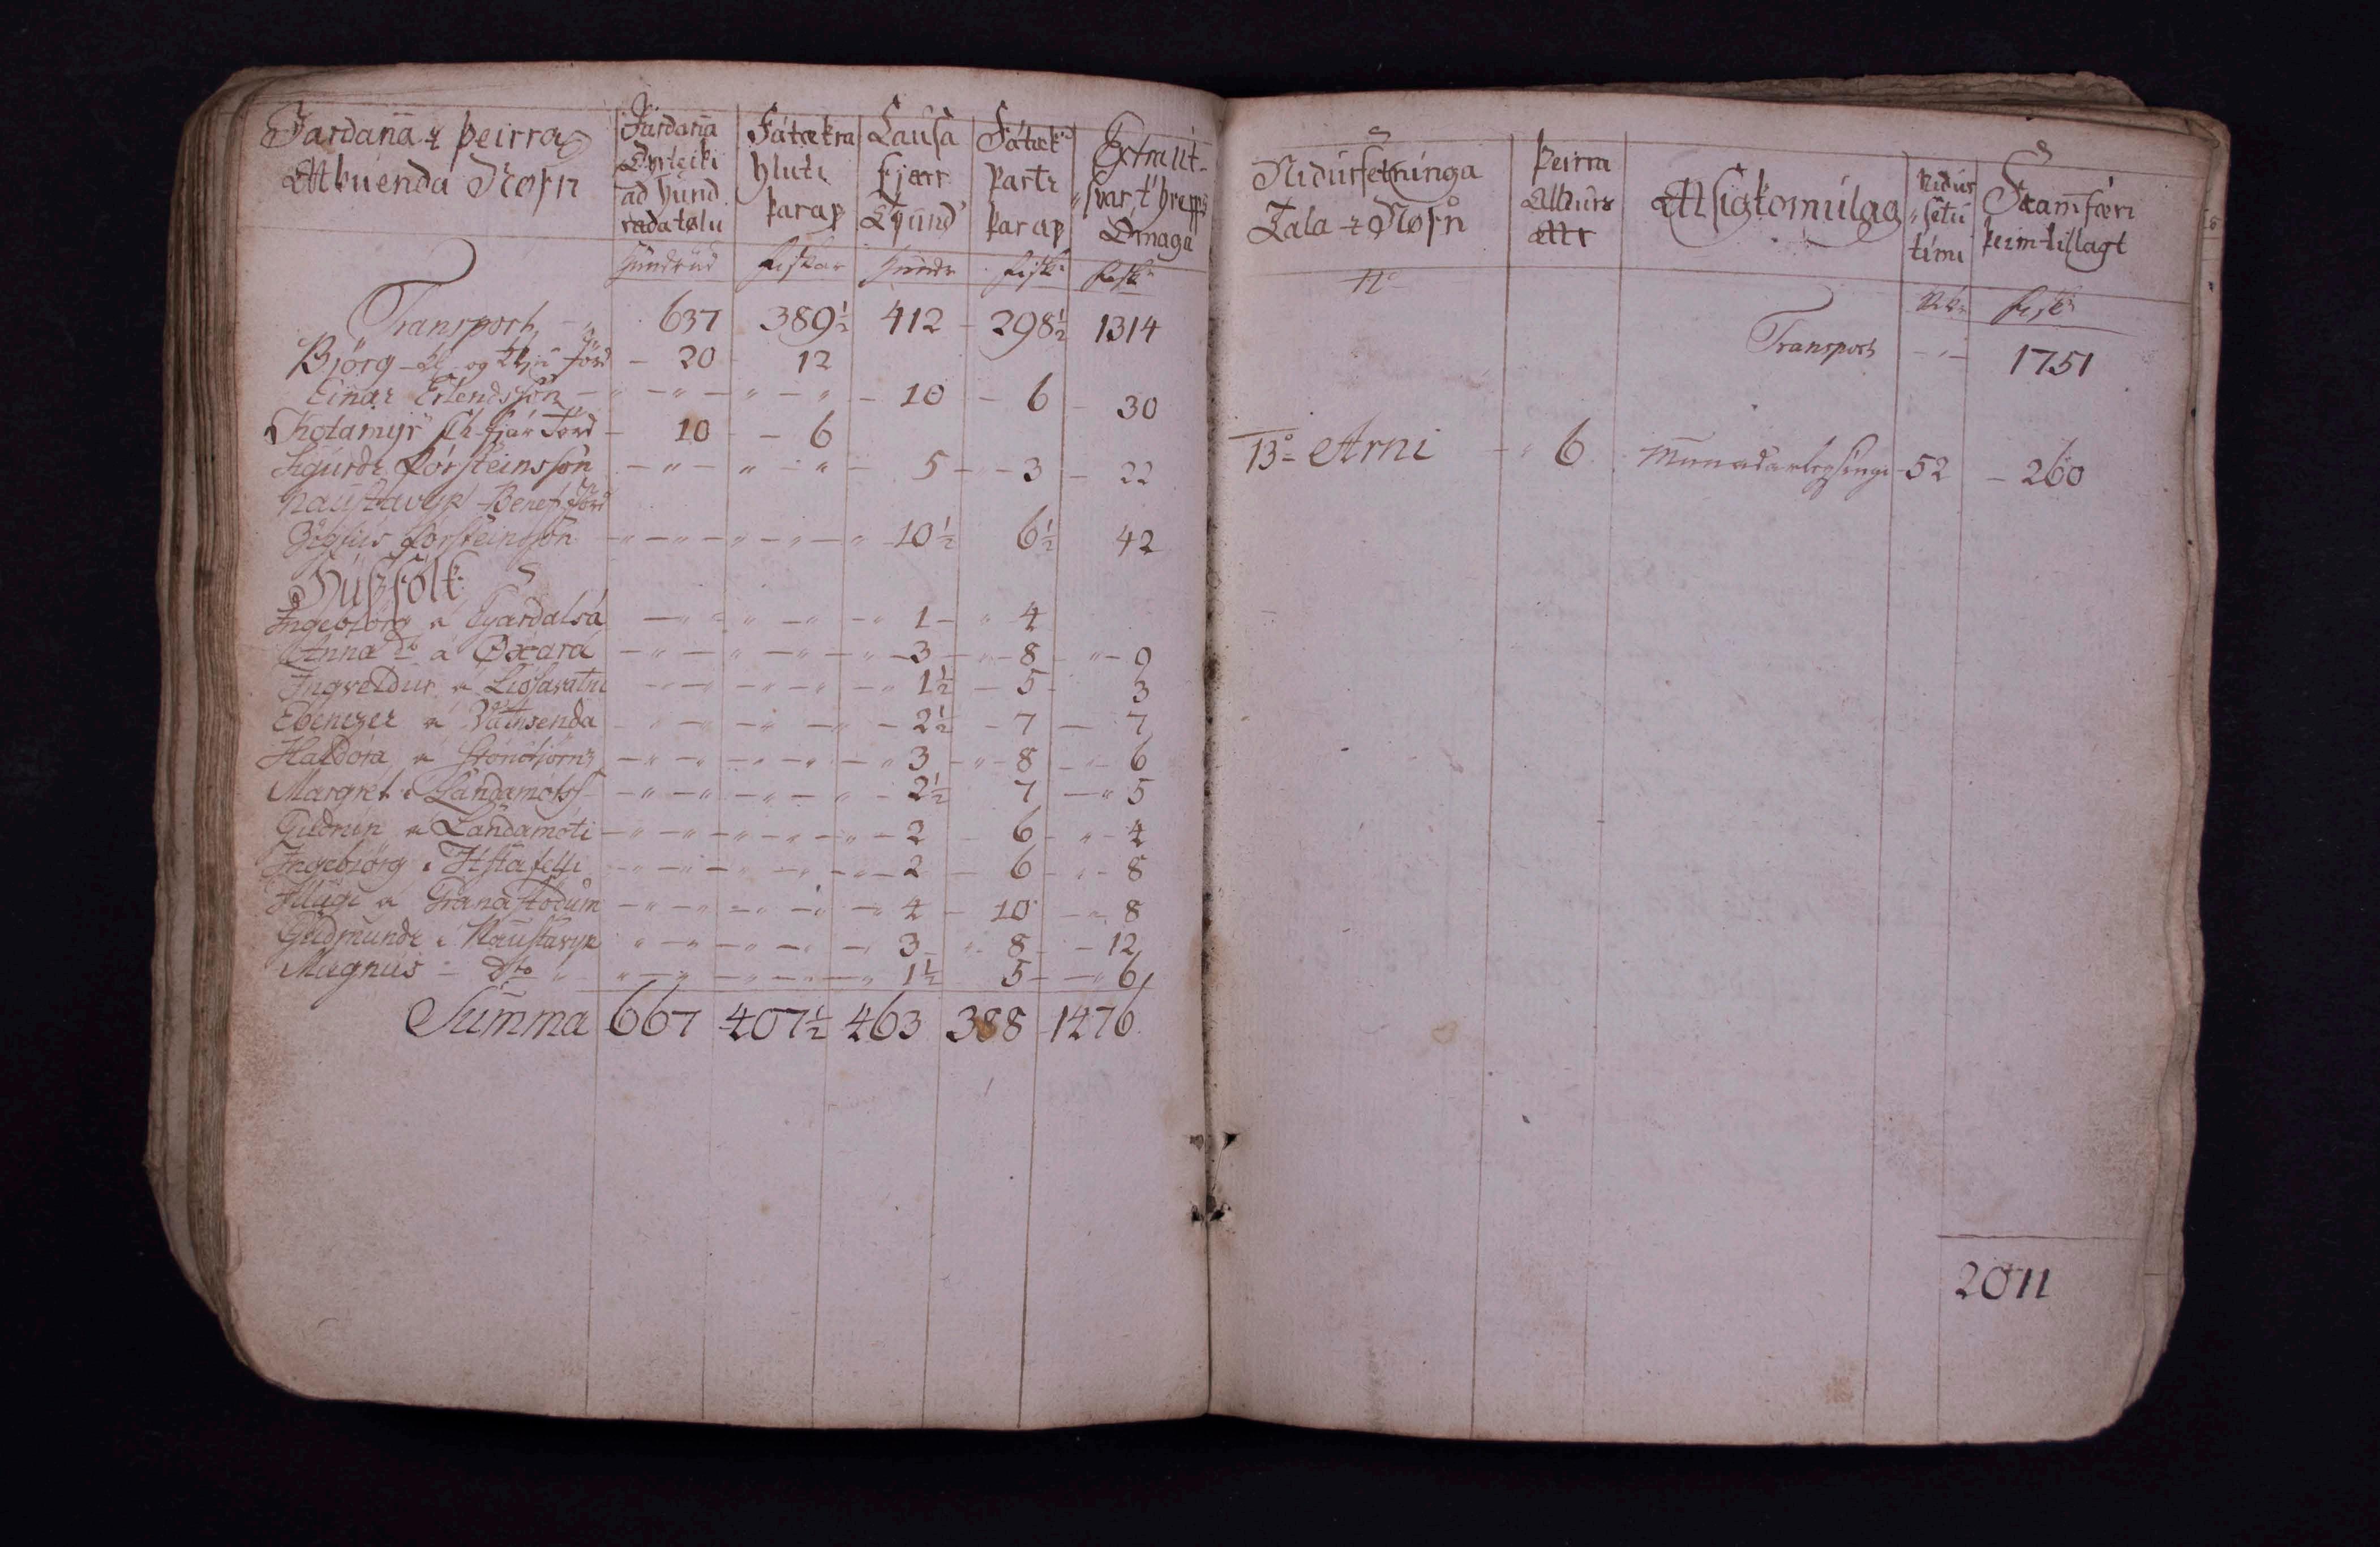 Jardana & þeirra
Abuenda Nøfn
Jardana Dyrleiki ad hund radatølu
Fátækra hluti þar ap
Lausa fjarr Tyund
Fátæk partr þar ap
Extra út svar t hrepps Ómaga
Hundrud Fiskar Hundr Fisk Fisk
Transport 637 389½ 412 298½ 1314
Björg Jörd 20 12
Einar Erlendsson 10 6 30
Kotamyr Jörd 10 6
Sigurdr Þorsteinsson 5 3 22
Naustavyk Benef Jörd
Þorsteinsson 10½ 6½ 42
Húsfólk
Ingebiörg á Gardalsá 1 4
Anna do á Øxará 3 8 9
Ingveldur á Liósavatni 1½ 5 3
Ebenezer á Vatnsenda 2½ 7 7
Haldóra á 3 8 6
Margrét Landamótss 2½ 7 5
Gudrun á Landamóti 2 6 4
Ingebiörg í Fellsfelli 2 6 8
Illugi á Granastödum 4 10 8
Gudmundr í Naustavyk 3 8 12
Magnús dto 1½ 5 6
Summa 667 407½ 463 388 1476
Nidursetninga Tala & Nøfn
þeirra Alldurs
Asigkomúlag
Nidur setu tími
Framfæri þeim tillagt
No Fisk
Transport 1751
13o Arni 6 Munadarleysingi 52 260
2011